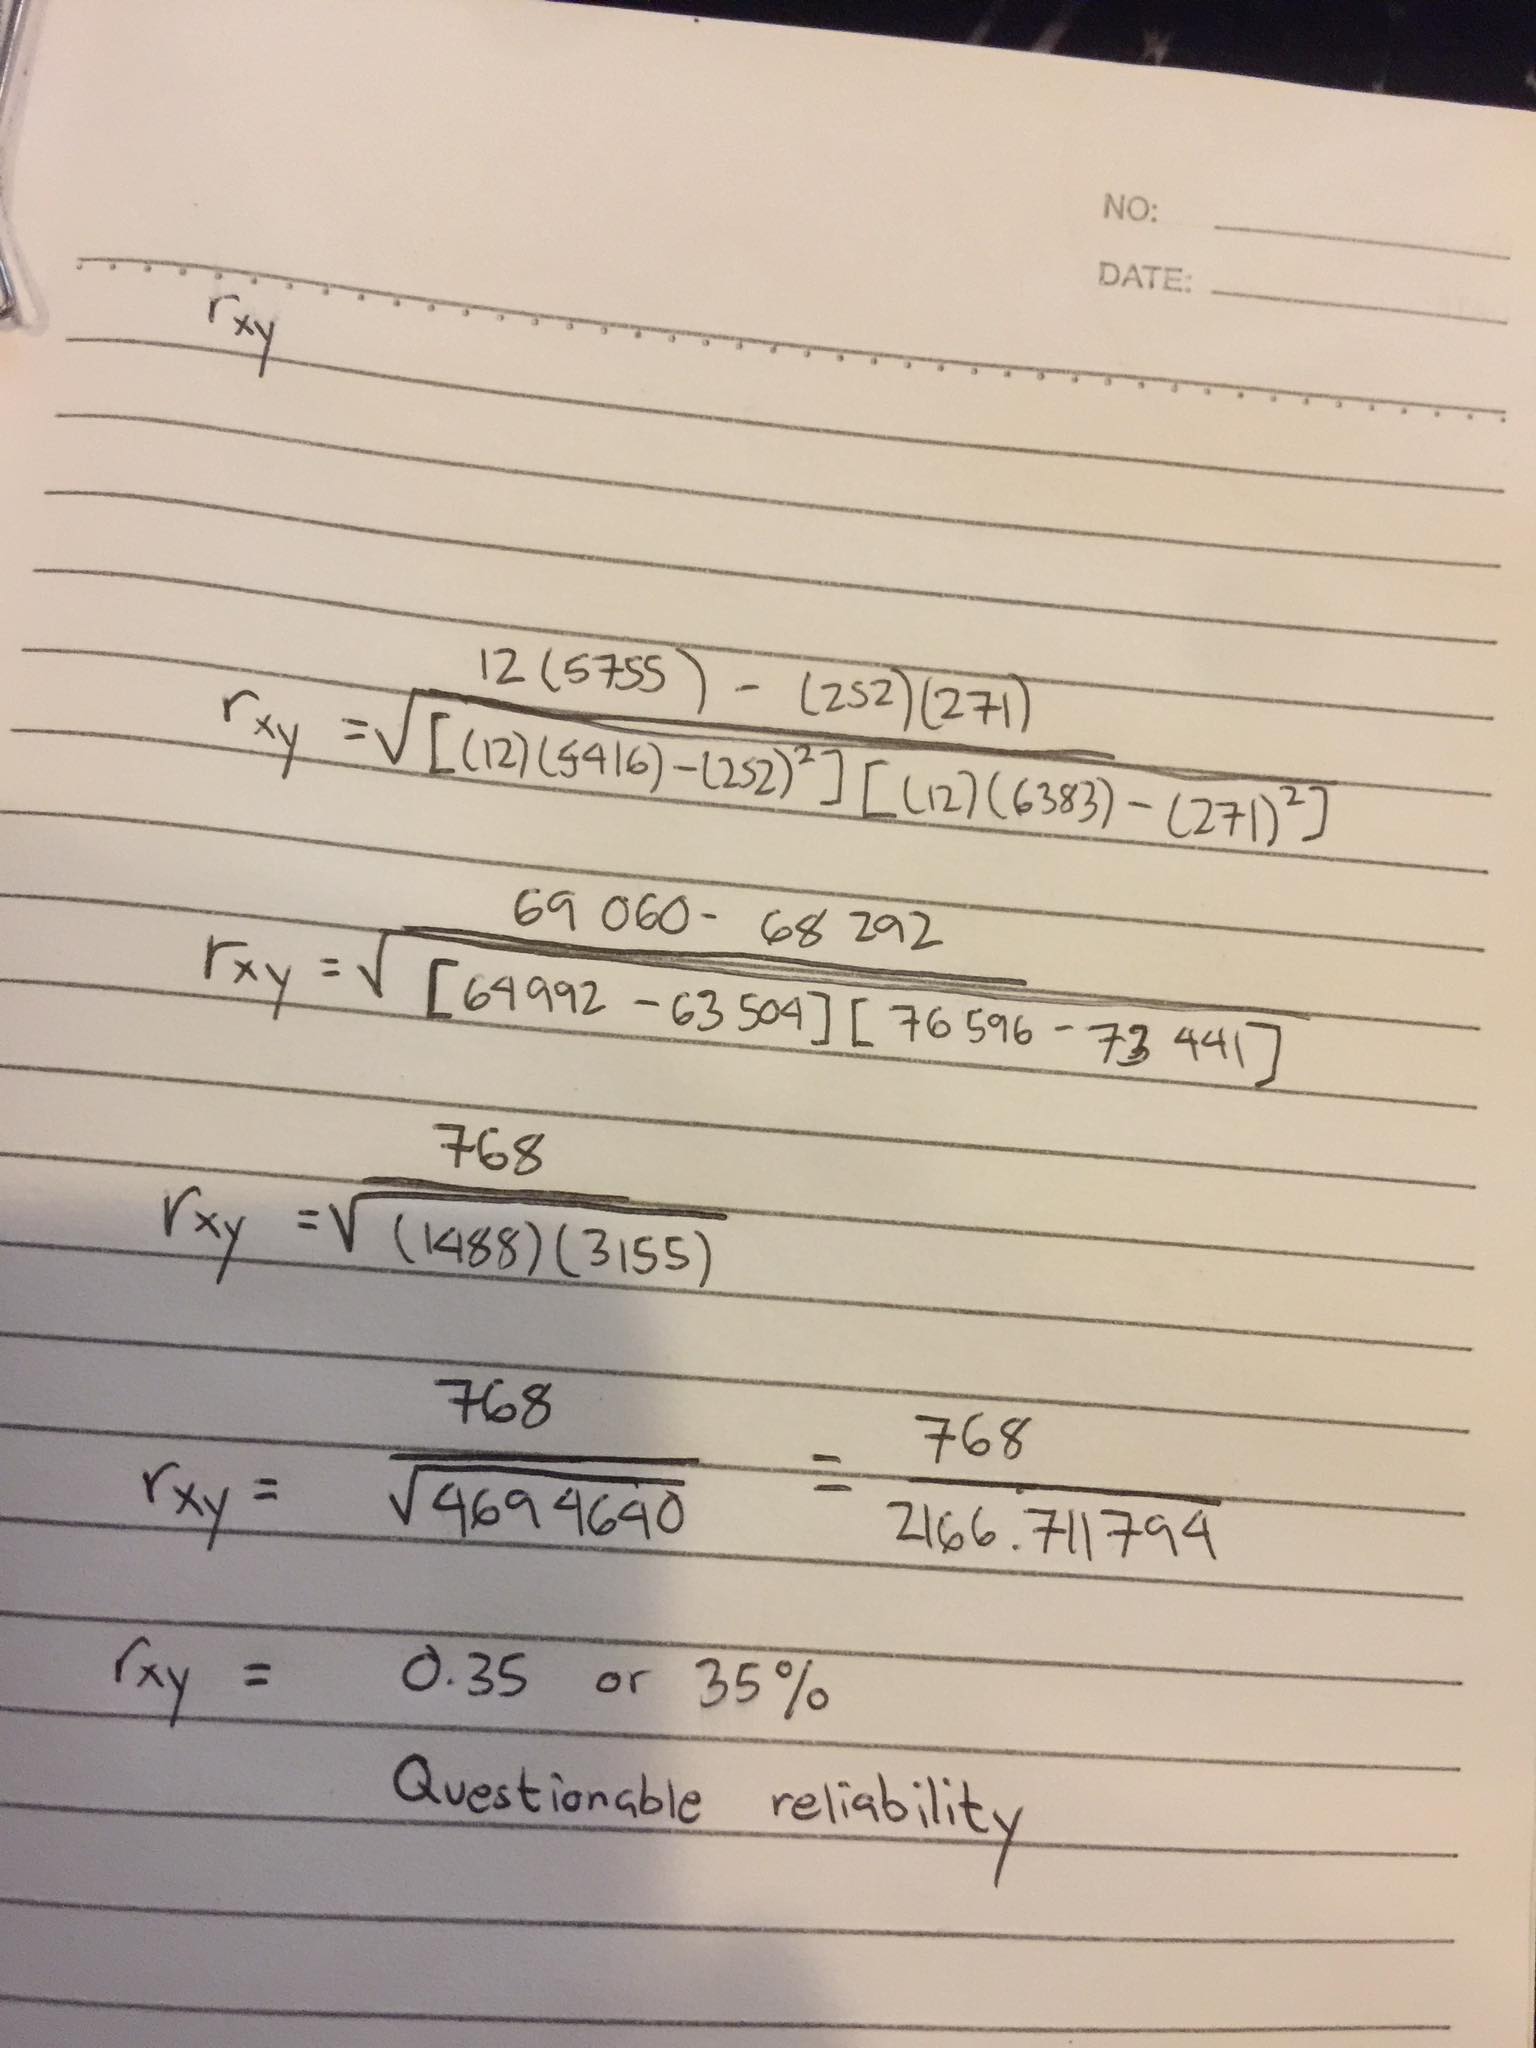 NO:
DATE:
rxy
12(5755) - (252)(271)
rxy = √[(12)(5416)-(252)²][(12)(6383)-(271)²]
69 060 - 68 292
rxy = √[64992 - 63 504][76 596 - 73 441]
768
rxy = √(1488)(3155)
768 768
rxy = √4694640 = 2166.711794
rxy = 0.35 or 35%
Questionable reliability